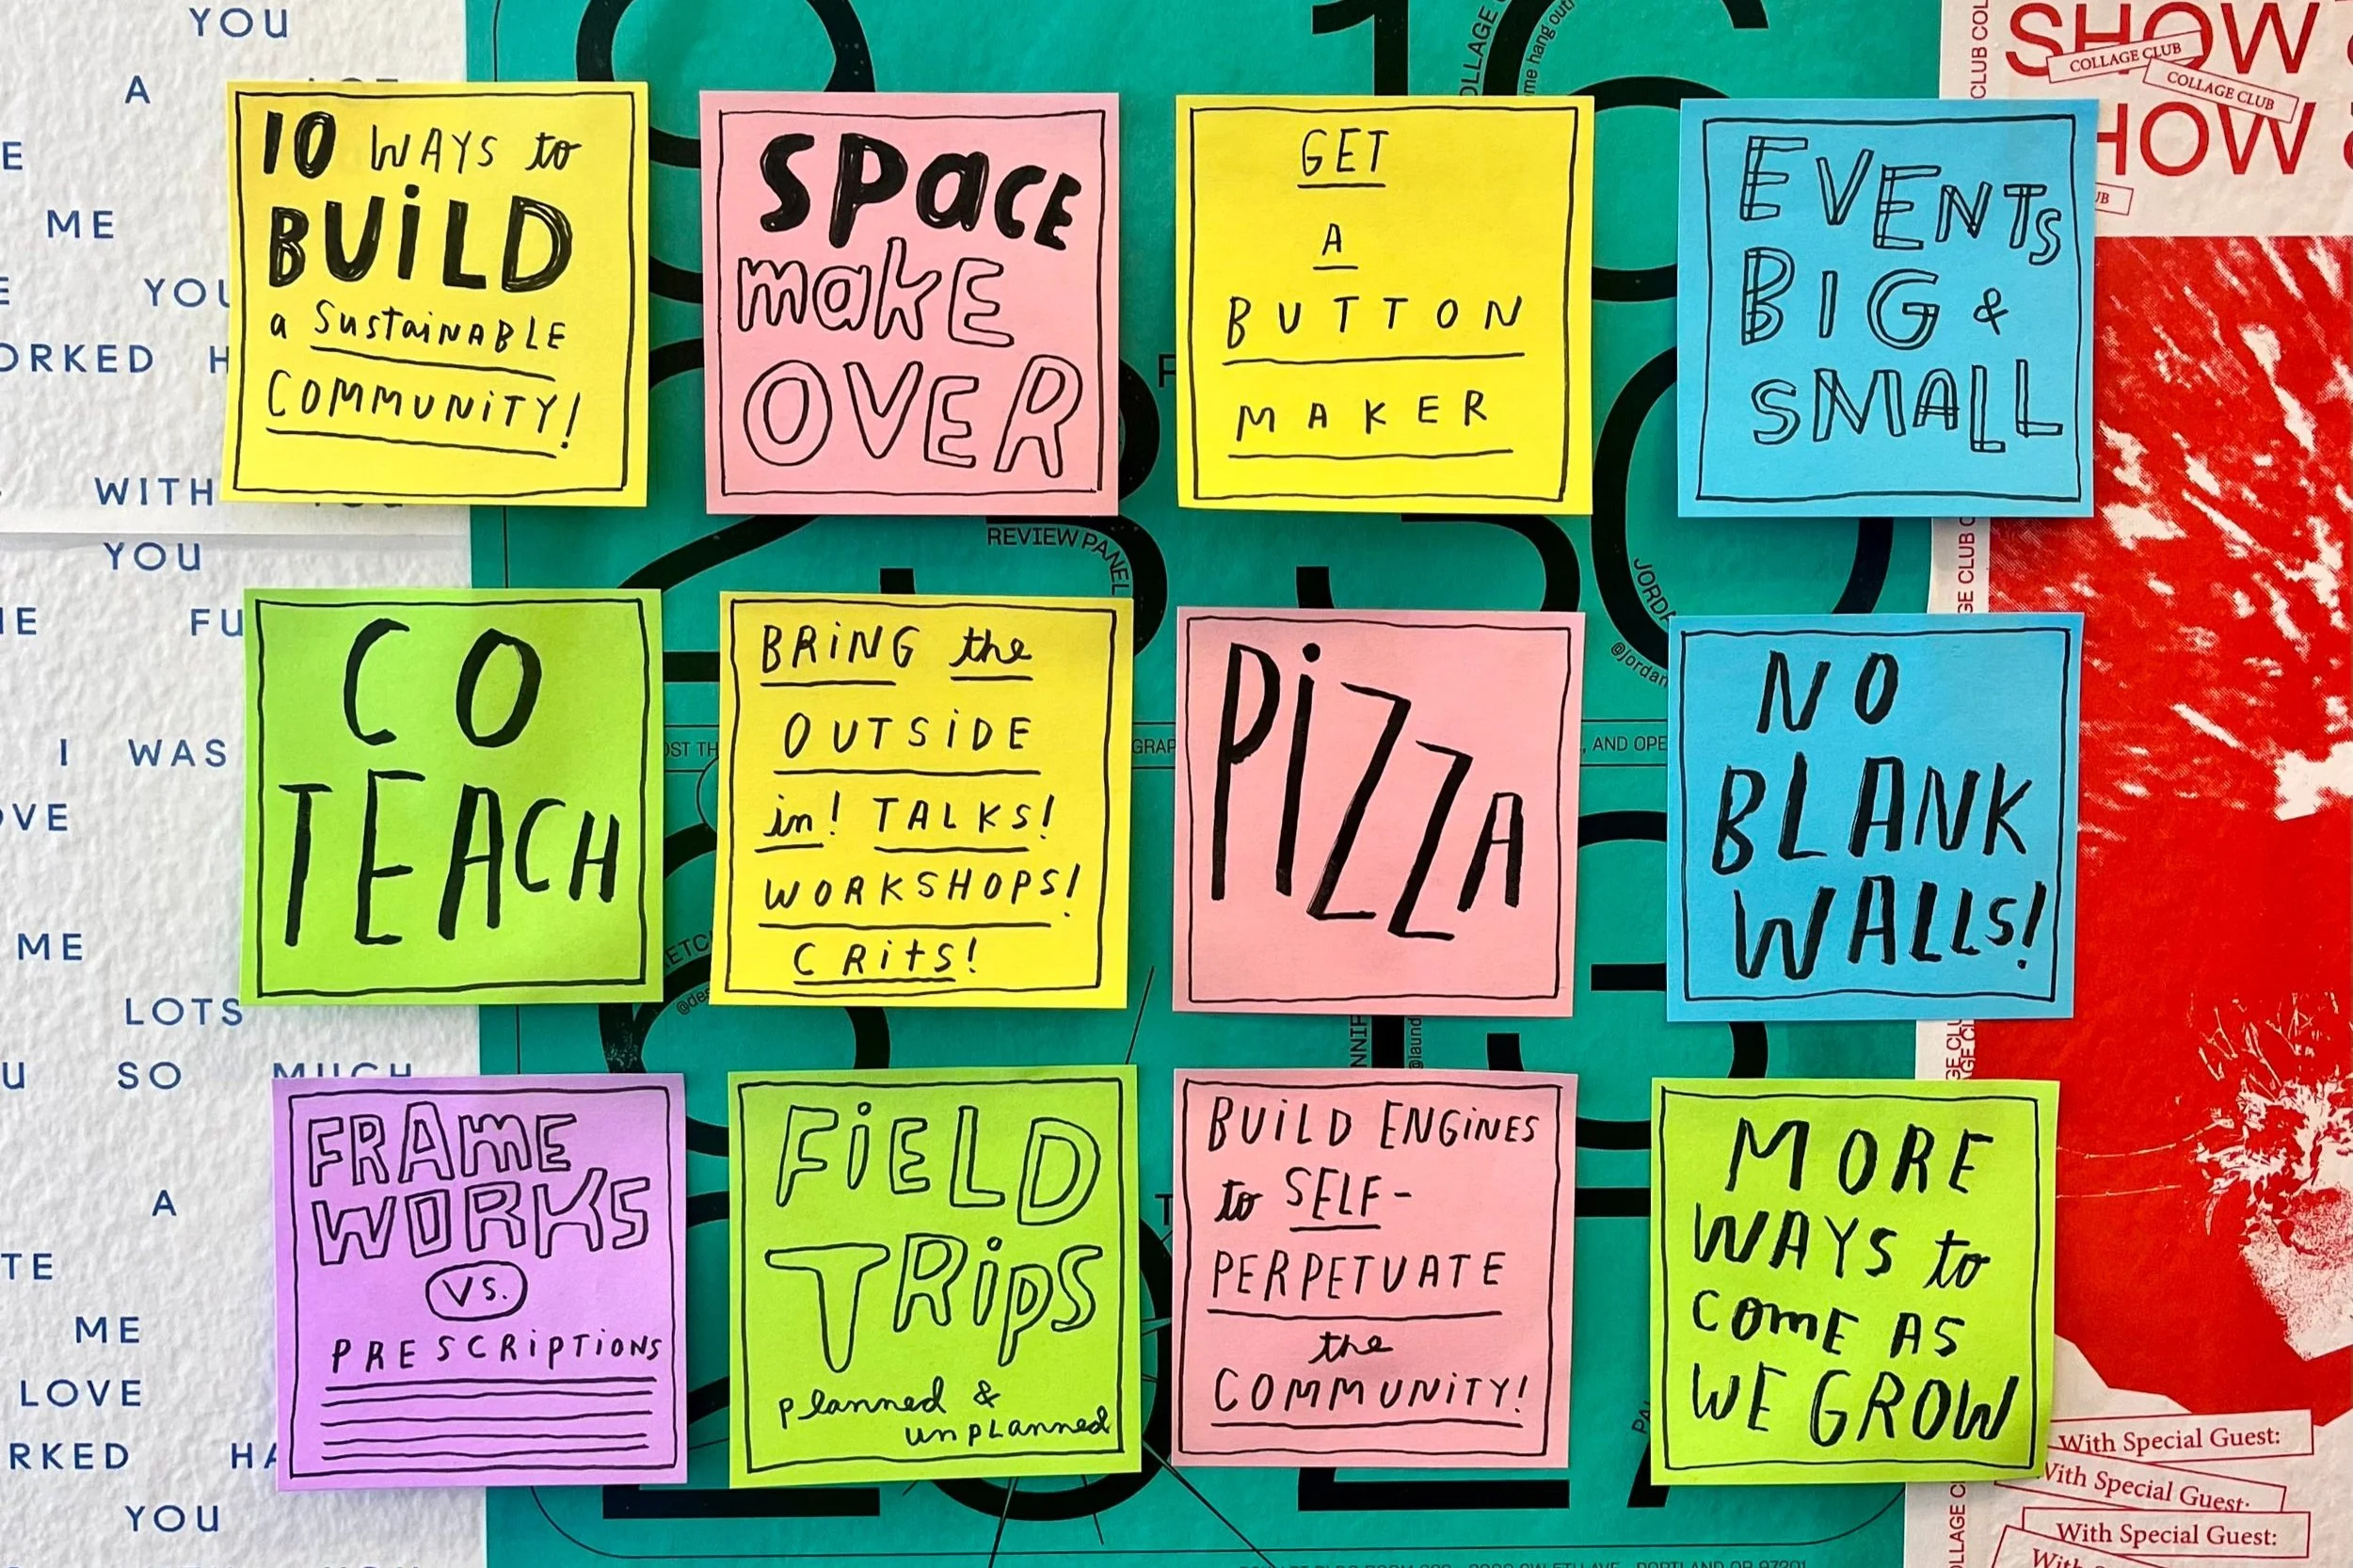 10 WAYS to
BUiLD
a SustaiNABLE
COMMUNiTY!
SPaCE
makE
OVER
GET
A
BUTTON
MAKER
EVENTS
BIG &
SMALL
CO
TEACH
BRiNG the
OUTSiDE
in! TALKS!
WORKSHOPS!
CRitS!
PiZZA
NO
BLANK
WALLS!
FRAmE
WORKS
VS.
PRESCRiPTiONS
FiELD
TRipS
planned &
unplanned
BUiLD ENGiNES
to SELF-
PERPETUATE
the
COMMUNiTY!
MORE
WAYS to
COmE AS
WE GROW
YOU
A
ME
WITH
YOU
I WAS
ME
LOTS
SO MUCH
A
ME
LOVE
YOU
16
REVIEW PANEL
AND
SHOW
COLLAGE CLUB
COLLAGE CLUB
With Special Guest:
With Special Guest:
With Special Guest: